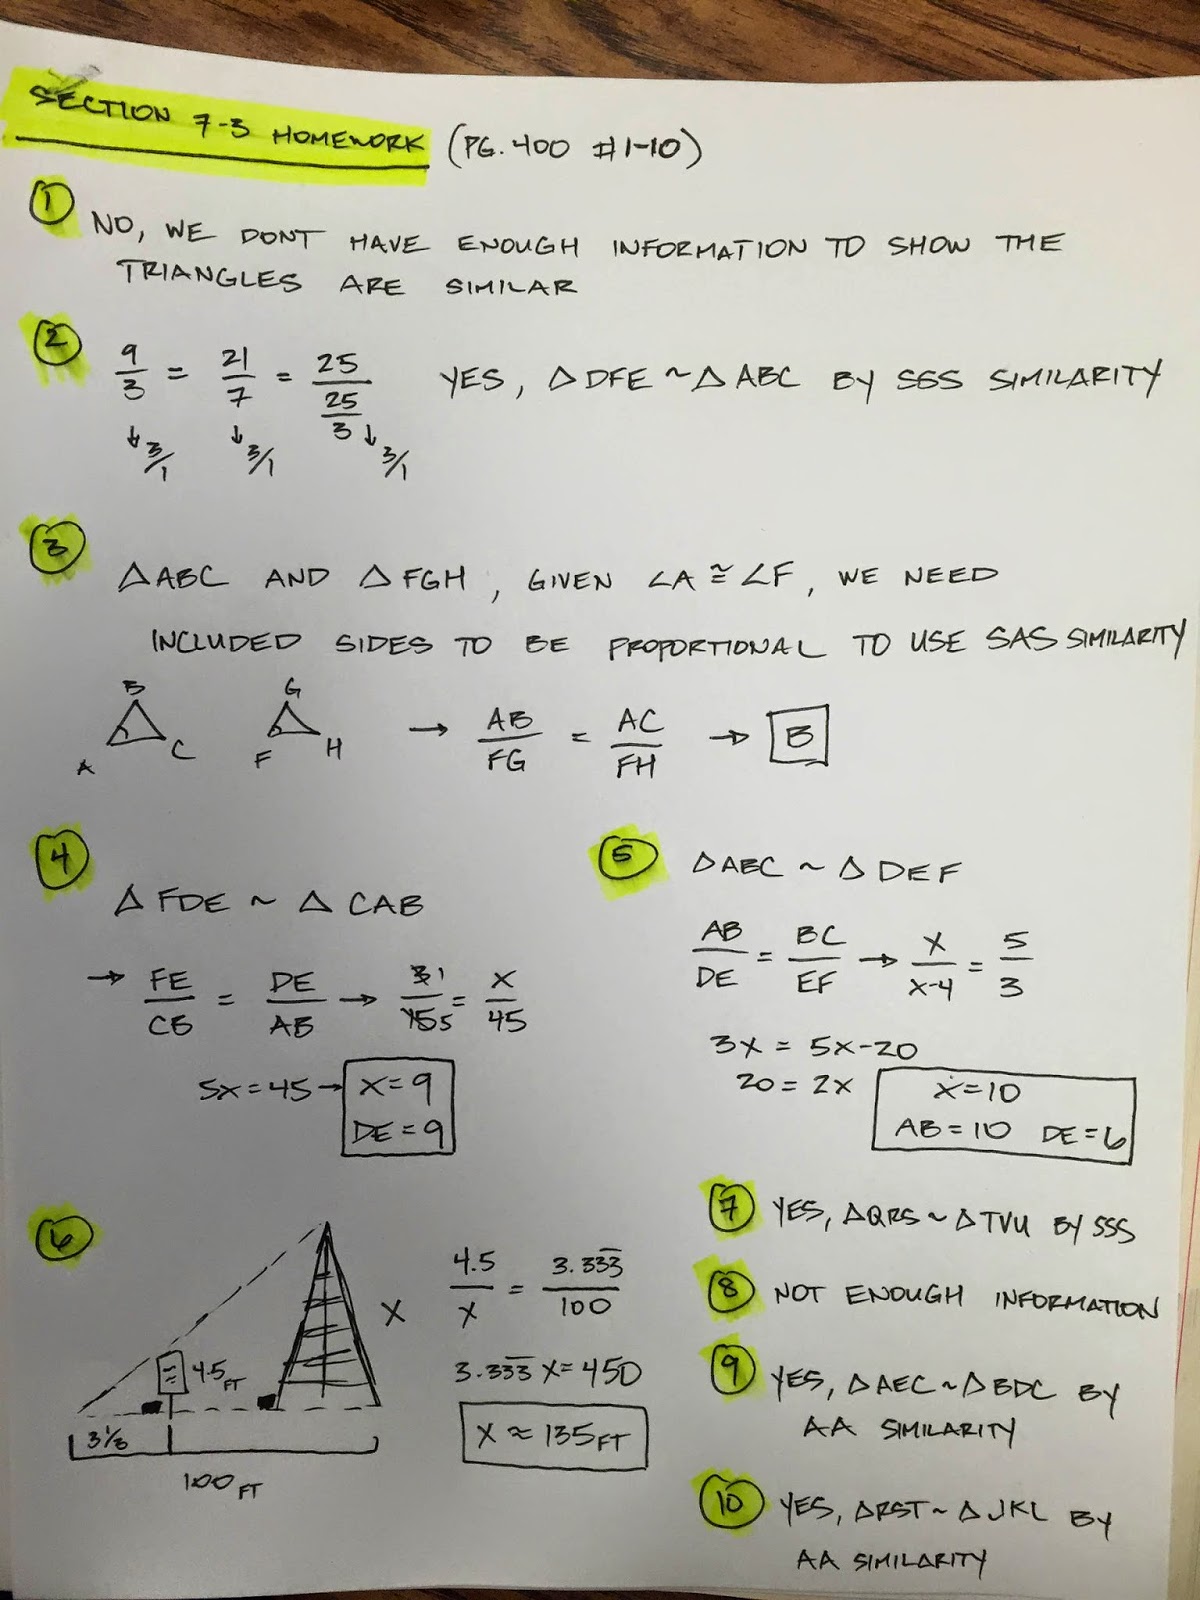 SECTION 7-3 HOMEWORK (PG. 400 #1-10)
1
NO, WE DONT HAVE ENOUGH INFORMATION TO SHOW THE
TRIANGLES ARE SIMILAR
2
9/3 = 21/7 = 25/(25/3) YES, △DFE ~ △ABC BY SSS SIMILARITY
↓3/1 ↓3/1 ↓3/1
3
△ABC AND △FGH, GIVEN ∠A ≅ ∠F, WE NEED
INCLUDED SIDES TO BE PROPORTIONAL TO USE SAS SIMILARITY
B G
A C F H → AB/FG = AC/FH → B
4
△FDE ~ △CAB
→ FE/CB = DE/AB → 3 1/15 5 = X/45
5X = 45 → X = 9
DE = 9
5
△ABC ~ △DEF
AB/DE = BC/EF → X/X-4 = 5/3
3X = 5X-20
20 = 2X X = 10
AB = 10 DE = 6
6
4.5 FT X
3 1/3
100 FT
4.5/X = 3.33̅3̅/100
3.33̅3̅ X = 450
X ≈ 135 FT
7 YES, △QRS ~ △TVU BY SSS
8 NOT ENOUGH INFORMATION
9 YES, △AEC ~ △BDC BY
AA SIMILARITY
10 YES, △RST ~ △JKL BY
AA SIMILARITY